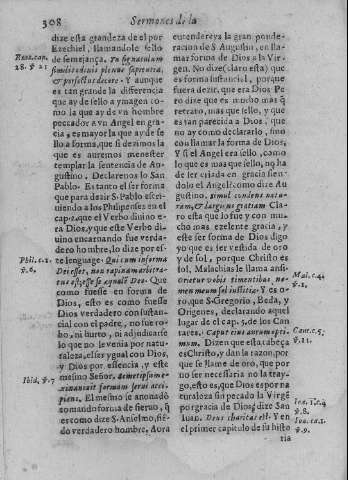 308 Sermones de la
dize esta grandeza de el por
Ezechiel, llamandole sello
de semejança. Tu signaculum
similitudinis plenus sapientia,
& perfectus decore. Y aunque
es tan grande la differencia
que ay de sello a ymagen como
la que ay de vn hombre
peccador a vn Angel en gracia,
es mayor la que ay de sello
a forma, que si dezimos la
que es auremos menester
templar la sentencia de Augustino.
Declaremos lo San
Pablo. Es tanto el ser forma
que para dezir S. Pablo escriuiendo
a los Philipenses en el
cap.2. que el Verbo diuino era
Dios, y que este Verbo diuino
encarnando fue verdadero
hombre, lo dize por este
lenguage. Qui cum in forma
Dei esset, non rapinam arbitratus
est, esse se æqualē Deo. Que
como fuesse en forma de
Dios, esto es como fuesse
Dios verdadero consustancial
con el padre, no fue robo,
ni hurto, ni adjudicarse
lo que no le venia por naturaleza,
el ser ygual con Dios,
y Dios por essencia, y este
mesmo Señor, semetipsum exinaniuit
formam serui accipiens.
El mesmo se anonadó
tomando forma de sieruo, q̃
es como dize S. Anselmo, siẽdo
verdadero hombre. Aora
Ezec. cap.
28. ℣ 21
Phil. c. 2.
℣. 6.
Ibid. ℣. 7
entendereys la gran ponderacion
de S Augustin, en llamar
forma de Dios a la Virgen.
No dize (claro esta) que
es forma sustancial, porque
fuera dezir, que era Dios. Pero
dize que es mucho mas q̃
retrato, mas que sello, y que
es tan parecida a Dios, que
no ay como declararlo, sino
con llamarla forma de Dios,
Y si el Angel era sello, como
lo que es mas que sello, no ha
de ser criada en gracia siendolo
el Angel? como dize Augustino.
simul condens naturam,
& largiens gratiam Claro
esta que lo fue y con mucho
mas excelente gracia, y
este ser forma de Dios digo
yo que es ser vestida de oro
y de sol, porque Christo es
sol, Malachias le llama ansi
Orietur vobis timentibus nomen
meum sol iustitiæ. Y es oro,
que S. Gregorio, Beda, y
Origenes, declarando aquel
lugar de el cap. 5. de los Cantares,
Caput eius aurum optimum.
Dizen que esta cabeça
es Christo, y dan la razon, por
que se llame de oro, que por
no ser necessaria no la traygo,
esto es, que Dios es por naturaleza
sin peccado la Virgẽ
por gracia de Dios; dize San
Iuan. Deus charitas est. Y en
el primer capitulo de su histo
ria
Mal. c. 4.
℣. 2.
Cant. c. 5.
℣. 11.
Ioa. 1. c. 4
℣. 8.
Ioa. c. 1.
℣. 9.